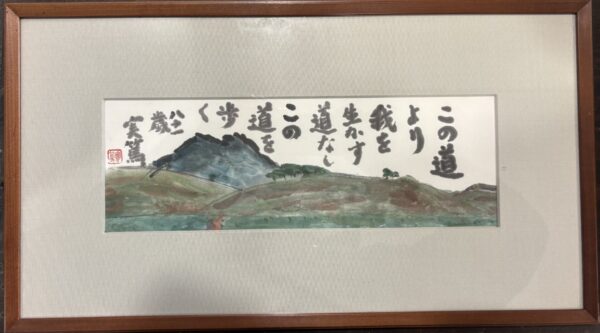 この道
より
我を
生かす
道なし
この
道を
歩
く
八十一
歳
実篤